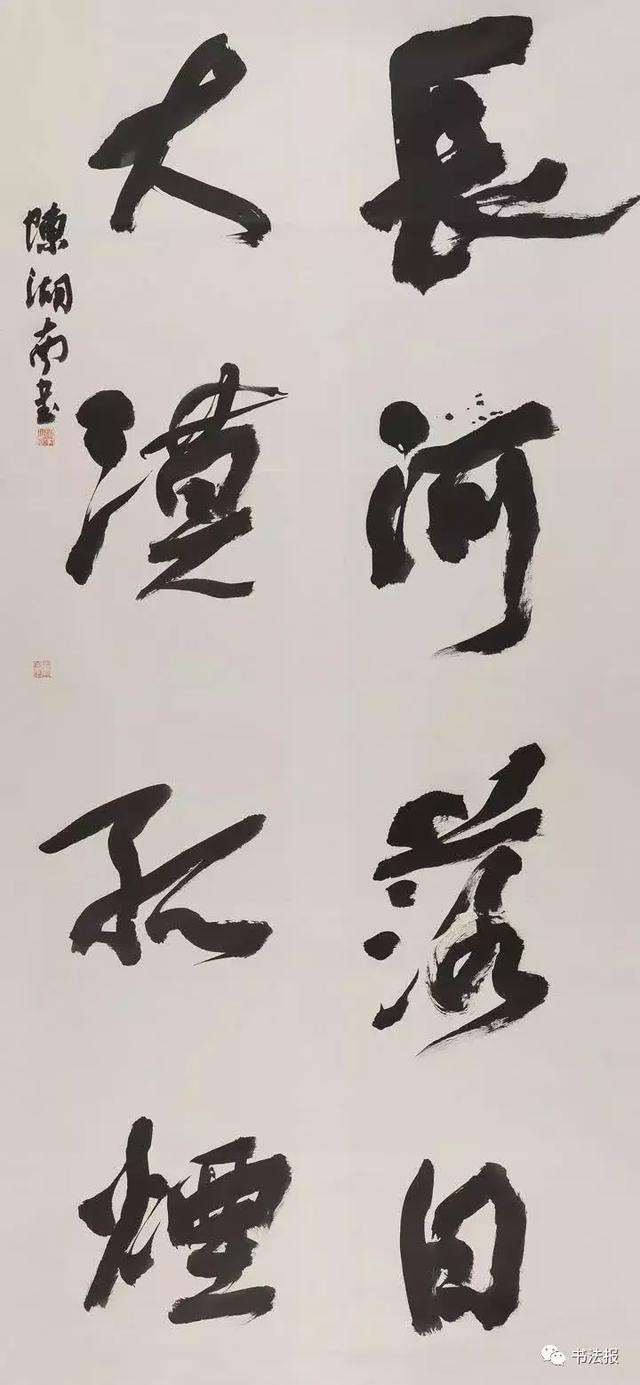 長河落日
大漠孤煙
陳湖南書
书法报